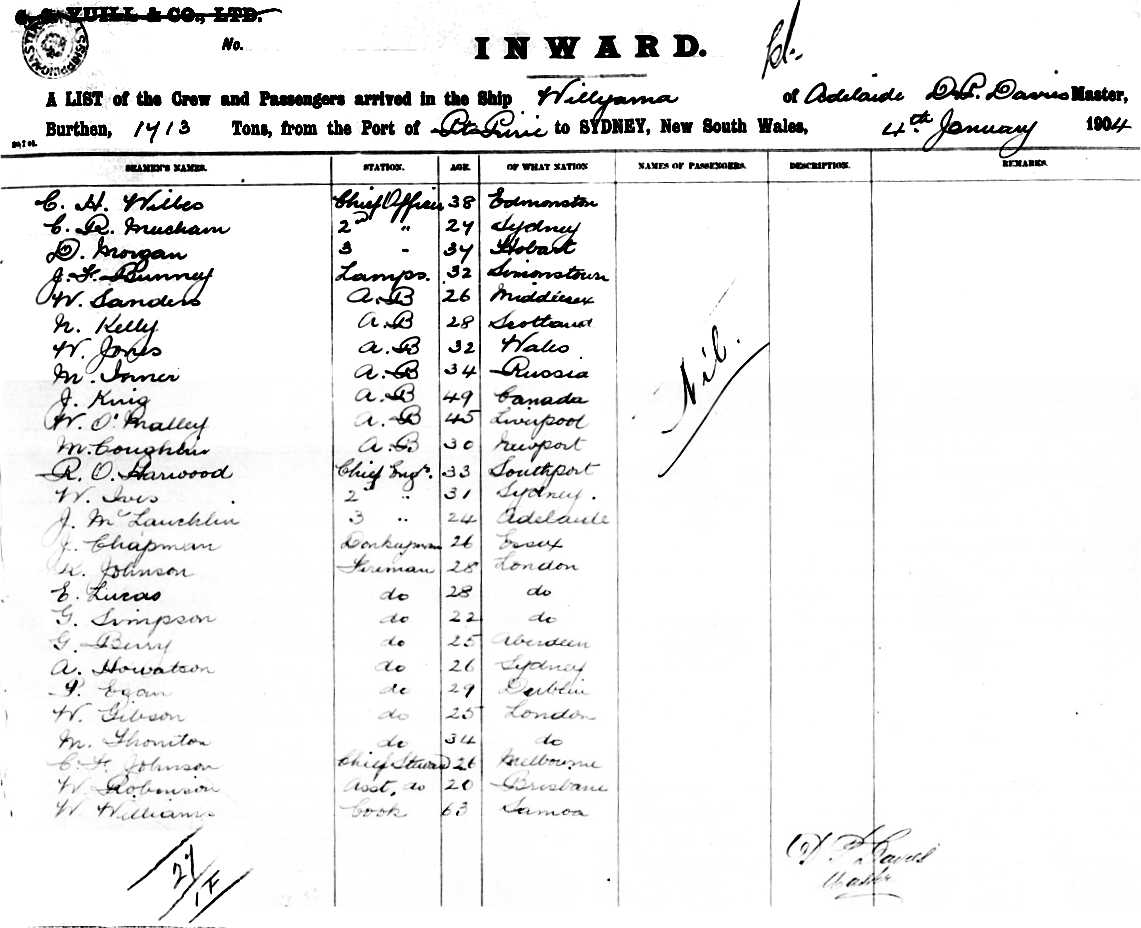 C. G. YUILL & CO., LTD.
No.
INWARD.
A LIST of the Crew and Passengers arrived in the Ship Willyama of Adelaide D.P. Davies Master,
Burthen, 1713 Tons, from the Port of Pt Pirie to SYDNEY, New South Wales, 4th January 1904
SEAMEN'S NAMES. STATION. AGE. OF WHAT NATION NAMES OF PASSENGERS. DESCRIPTION. REMARKS.
C. H. Wilkes Chief Officer 38 Edmonston
C. R. Meacham 2nd " 27 Sydney
D. Morgan 3 - 37 Hobart
J. F. Bunney Lamps. 32 Simonstown
W. Sanders A.B 26 Middlesex
N. Kelly A.B 28 Scotland
W. Jones A.B 32 Wales
M. A.B 34 Russia
J. King A.B 49 Canada
W. O'Malley A.B 45 Liverpool
M. Coughlin A.B 30 Newport
R. O. Harwood Chief Engr. 33 Southport
W. Ives 2 " 31 Sydney.
J. McLauchlin 3 " 24 Adelaide
J. Chapman Donkeyman 26 Essex
K. Johnson Fireman 28 London
E. Lucas do 28 do
G. Simpson do 22 do
G. Berry do 25 Aberdeen
A. Howatson do 26 Sydney
P. Egan do 29 Dublin
W. Gibson do 25 London
M. Thornton do 34 do
C. F. Johnson Chief Steward 26 Melbourne
W. Robinson Asst. do 20 Brisbane
W. Williams Cook 63 Samoa
Nil.
D P Davies
Master
27
1F